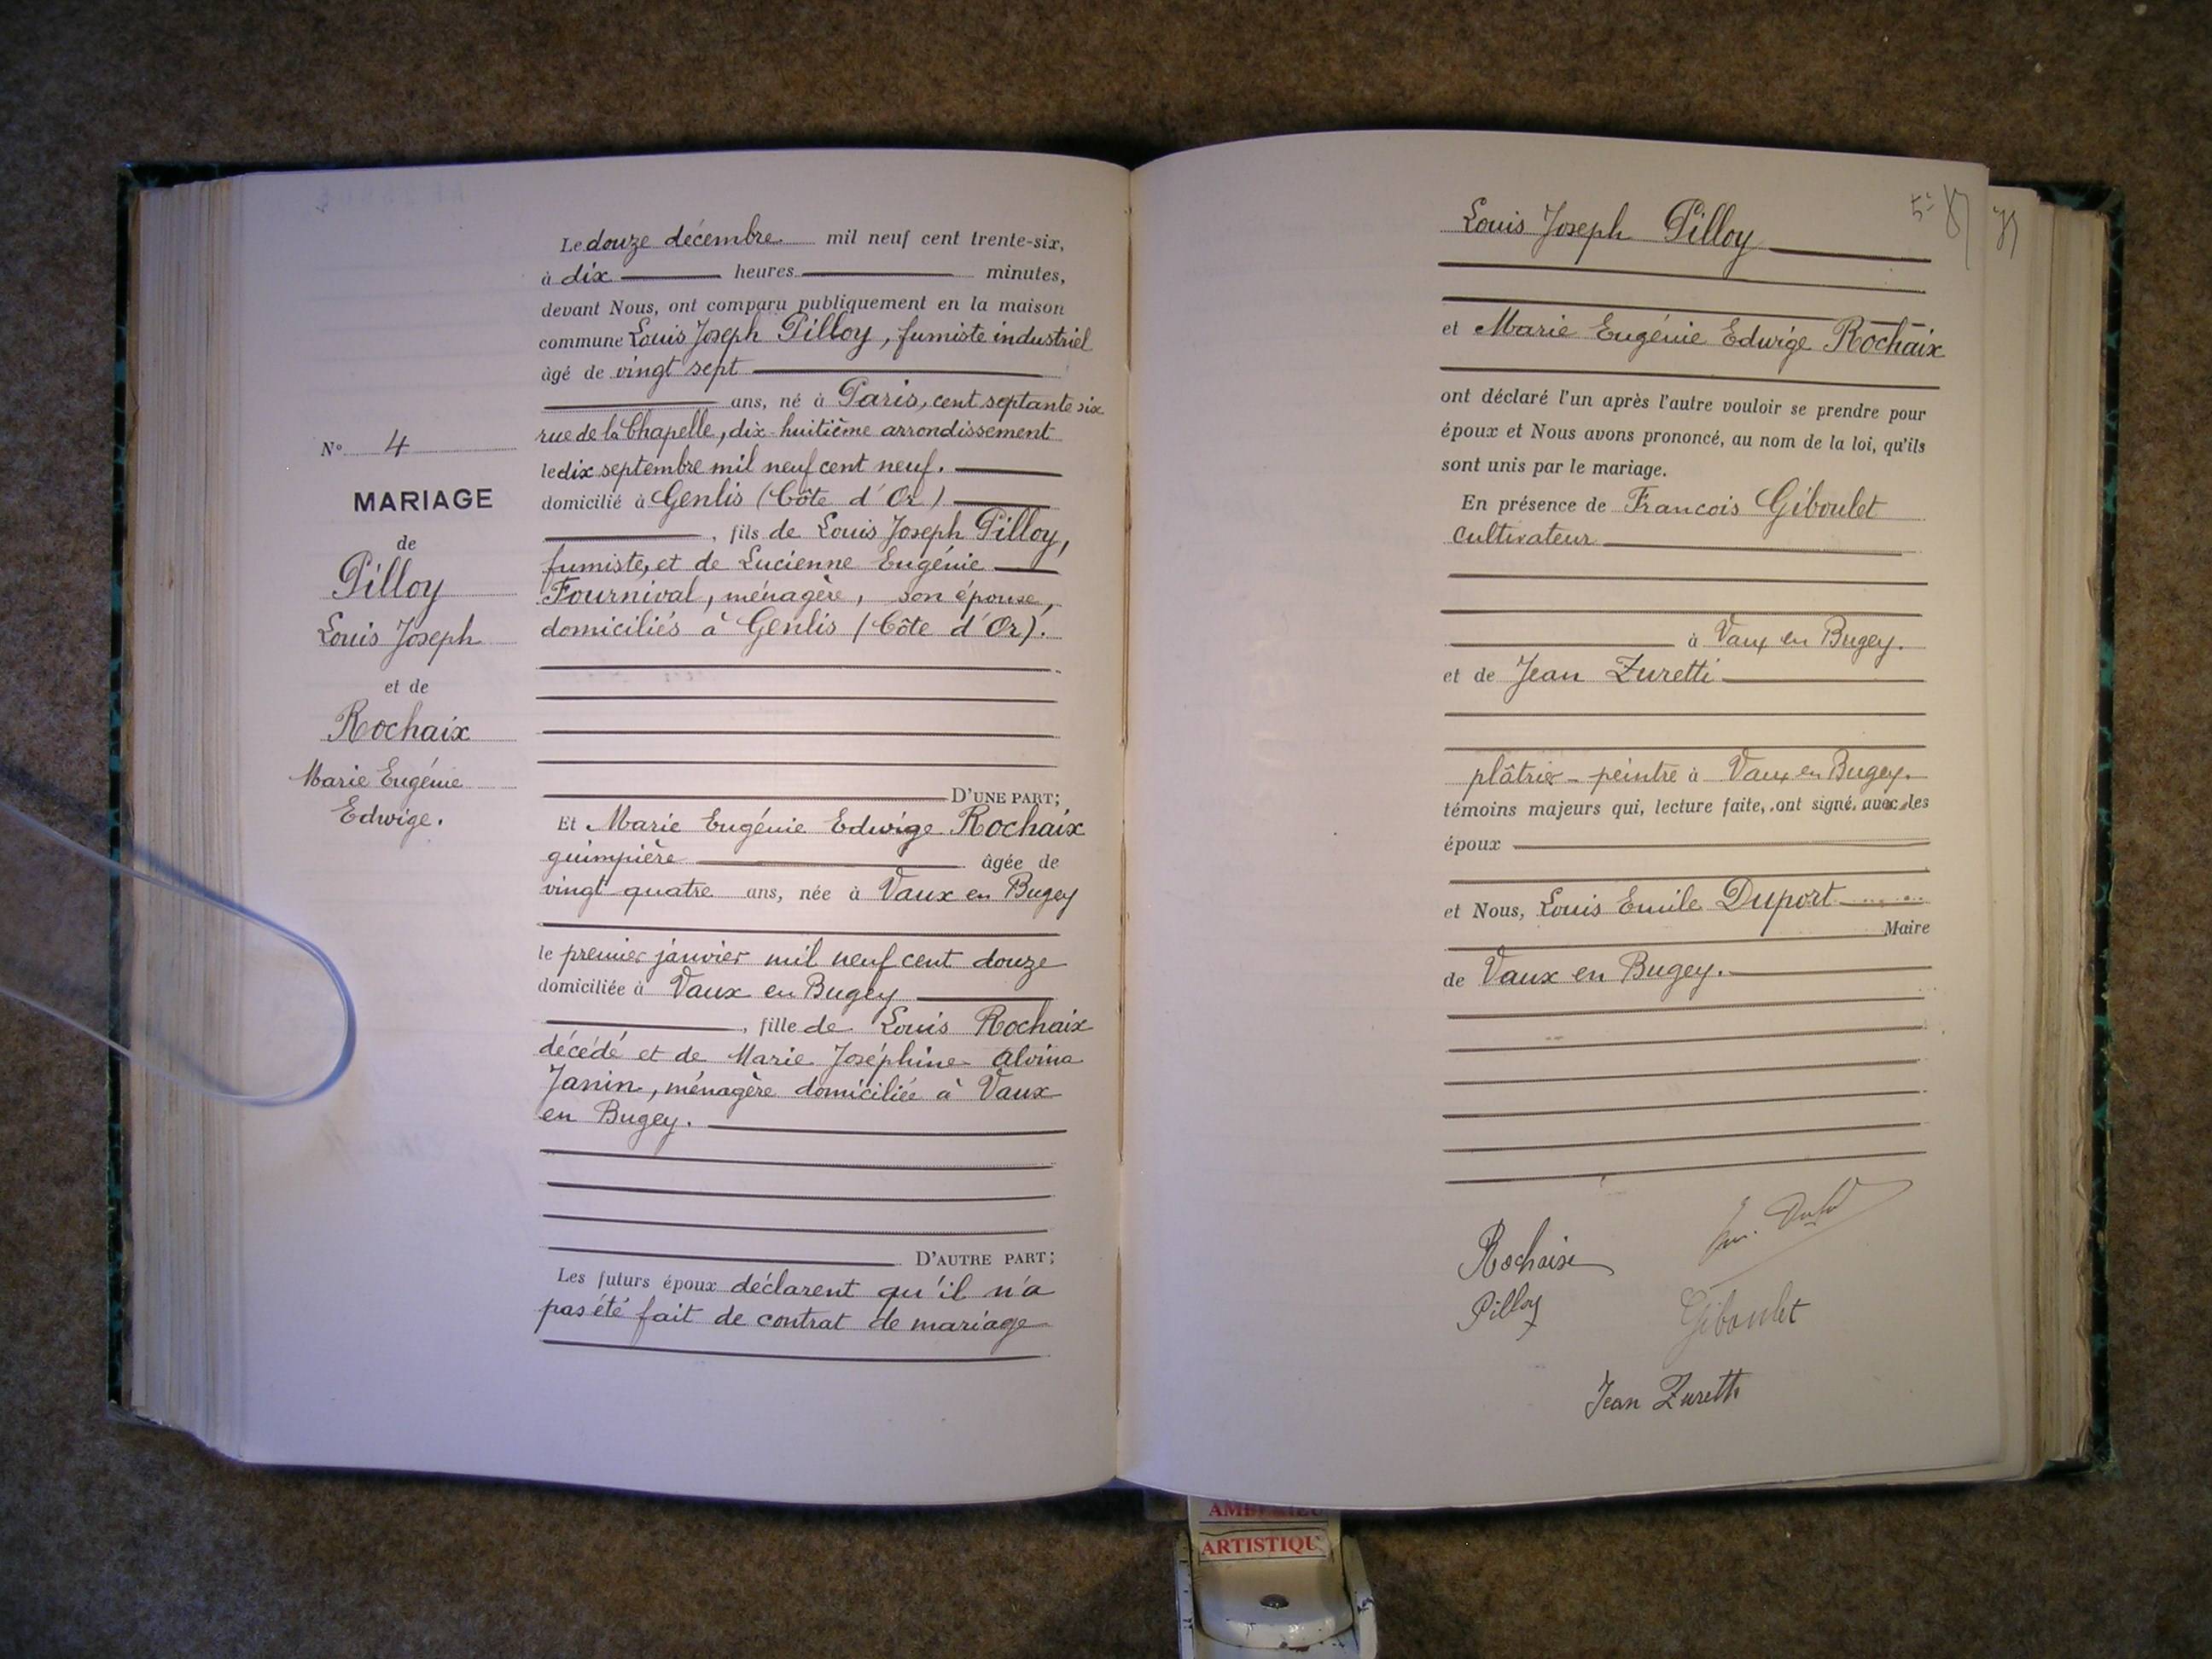 N° 4
MARIAGE
de
Pilloy
Louis Joseph
et de
Rochaix
Marie Eugénie
Edwige.
Le douze décembre mil neuf cent trente-six,
à dix heures minutes,
devant Nous, ont comparu publiquement en la maison
commune Louis Joseph Pilloy, fumiste industriel
âgé de vingt sept
ans, né à Paris, cent septante six
rue de la Chapelle, dix-huitième arrondissement
le dix septembre mil neuf cent neuf.
domicilié à Genlis (Côte d'Or)
, fils de Louis Joseph Pilloy,
fumiste, et de Lucienne Eugénie
Fournival, ménagère, son épouse,
domiciliés à Genlis (Côte d'Or).
D'UNE PART;
Et Marie Eugénie Edwige Rochaix
guimpière âgée de
vingt quatre ans, née à Vaux en Bugey
le premier janvier mil neuf cent douze
domiciliée à Vaux en Bugey
, fille de Louis Rochaix
décédé et de Marie Joséphine Alvina
Janin, ménagère domiciliée à Vaux
en Bugey.
D'AUTRE PART;
Les futurs époux déclarent qu'il n'a
pas été fait de contrat de mariage
Louis Joseph Pilloy
et Marie Eugénie Edwige Rochaix
ont déclaré l'un après l'autre vouloir se prendre pour
époux et Nous avons prononcé, au nom de la loi, qu'ils
sont unis par le mariage.
En présence de Francois Giboulet
cultivateur
à Vaux en Bugey.
et de Jean Zuretti
plâtrier-peintre à Vaux en Bugey.
témoins majeurs qui, lecture faite, ont signé avec les
époux
et Nous, Louis Emile Duport
Maire
de Vaux en Bugey.
Rochaix
Pilloy
Giboulet
Jean Zuretti
ARTISTIQU